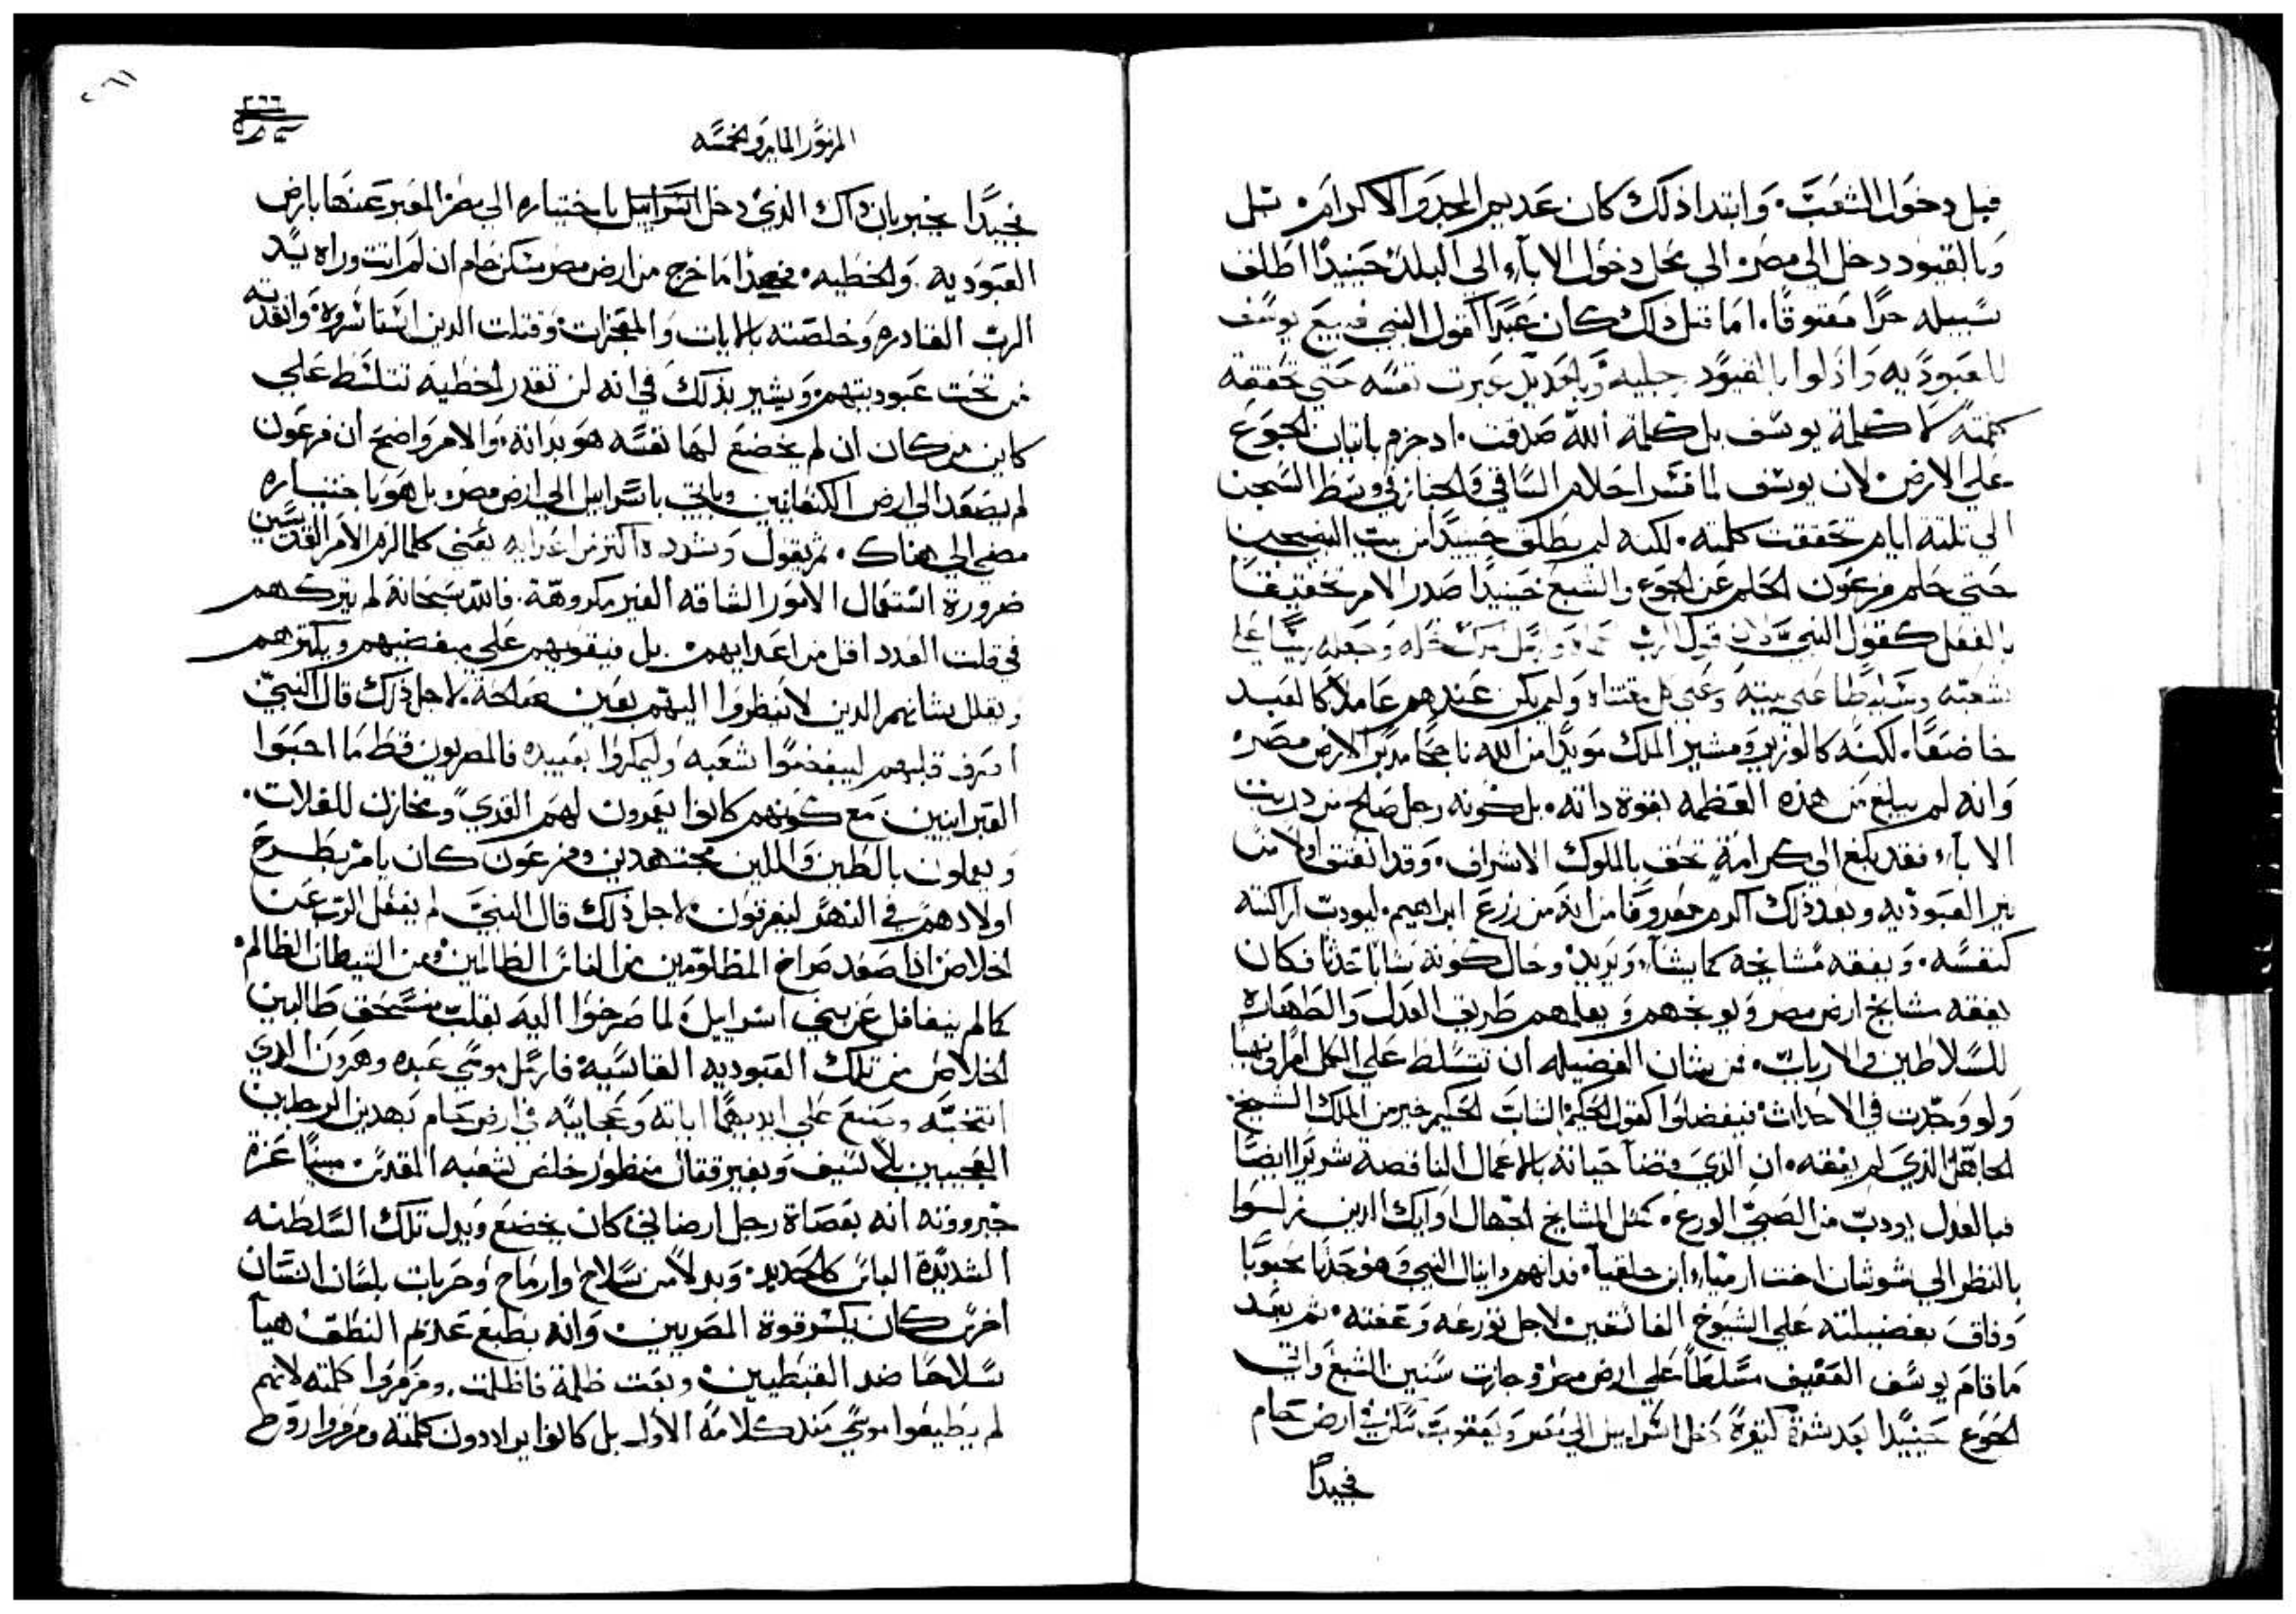 قبل دخول الشعب. وابتدا ذلك كان عديم المجد والاكرام. بل
وبالقيود دخل الي مصر. الي محل دخول الاباء الي البلد حينيدًا اطلق
سبيله حرًا معتوقًا. اما قبل ذلك كان عبدًا كقول النبي فبيع يوسف
للعبودية واذلوا بالقيود رجليه وبالحديد عبرت نفسه حتي تحققة
كلمته لا كلمة يوسف بل كلمة الله صدقت. اد حزم باتيان الجوع
علي الارض. لان يوسف لما فسر احلام الساقي والخباز في وسط السجن
الي تلتة ايام تحققت كلمته. لكنه لم يطلق حينيدًا من بيت السجن
حتي حلم فرعون الحلم عن الجوع والشبع حينيدًا صدر الامر تحقيقًا
بالفعل كقول النبي لان قول الرب وارسل ملك فحله وجعله رييسًا علي
شعبه وسليطًا علي بيته وعلي كل مقتناه ولم يكن عندهم عاملاً كالعبد
خاضعًا. لكنه كالوزير ومشير الملك مويدًا من الله ناجحًا مدبرًا لارض مصر
وانه لم يبلغ من هذه العظمه بقوة داته. بل كونه رجل صالح من دريت
الاباء فقد بلغ الي كرامةٍ تحق بالملوك الاشراف. وقد انعتق اولاً من
نير العبوديه وبعد ذلك اكرم معروفًا من انه من زرع ابراهيم. ليودب اراكنته
كنفسه. ويفقه مشايخه كما يشاء ويريد. وحال كونه شابًا حدثًا فكان
يفقه مشايخ ارض مصر ويوبخهم ويعلمهم طريق العدل والطهارة
للسلاطين والارباب. فمن شان الفضيله ان تتسلط علي الكل امرًا ونهيًا
ولو وجدت في الاحداث فيفضلوا كقول الحكيم الشاب الحكيم خير من الملك الشيخ
الجاهل الذي لم يفقه. ان الذي قضا حياته بالاعمال الناقصة شريرًا ايضًا
فبالعدل يودب من الصبي الورع. كمثل المشايخ الجهال اوليك الدين
بالنظر الي سوسان اخت ارمياء ابن حلقيا. فدانهم دانيال النبي وهو حدثًا محبوبًا
وفاق بفضيلته علي الشيوخ الفاسقين لاجل تورعه وعفته. ثم بعد
ما قام يوسف العفيف متسلطًا علي ارض مصر وجازت سنين الشبع واتت
الجوع حينيدًا بعد شدة كثيرة دخل اسراييل الي مصر ويعقوب سكن في ارض حام
فحينيدًا
المزمور المايه والخمسه
فحينيدًا يخبر بان داك الذي دخل اسراييل باختياره الي مصر المعبر عنها بارض
العبوديه والخطيه. فحينيدًا ما خرج من ارض مصر مسكن حام ان لم اتت وراه يد
الرب القادره وخلصته بالايات والمعجزات وقتلت الدين استاسروه وانقدته
من تحت عبوديتهم ويشير بذلك في انه لن تقدر الخطيه تتلسط علي
كاين من كان ان لم يخضع لها نفسه هو بداته. والامر واضح ان فرعون
لم يصعد الي ارض الكنعانيين وياتي باسراييل الي ارض مصر. بل هو باختياره
مضي الي هناك. ثم يقول وشدده اكتر من اعدايه يعني كلما الزم الامر القديسين
ضرورة استعمال الامور الشاقه الغير مكروهة. فالله سبحانه لم يتركهم
في قلت العدد اقل من اعدايهم. بل فيقويهم علي مبغضيهم ويكترهم
ويقلل بشانهم الدين لا ينظروا اليهم بعين صالحة. لاجل ذلك قال النبي
اصرف قلبهم ليبغضوا شعبه وليمكروا بعبيده فالمصريون قط ما احبوا
العبرانيين مع كونهم كانوا يعمرون لهم القري ومخازن للغلات.
ويعملون بالطين واللبن مجتهدين وفرعون كان يامر بطرح
اولادهم في النهر ليغرقون. لاجل ذلك قال النبي لم يغفل الرب عن
الخلاص اذا صعد صراخ المظلومين من الناس الظالمين ومن الشيطان الظالم.
كما لم يتغافل عن بني اسراييل لما صرخوا اليه بقلب منسحق طالبين
الخلاص من تلك العبوديه القاسيه فارسل موسي عبده وهرون الذي
انتخبه وصنع علي ايديهما اياته وعجايبه في ارض حام بهدين الرجلين
العجيبين بلا سيف وبغير قتال منظور خلص شعبه المقدس مبينًا عزة
جبرووته انه بعصاة رجل ارضاني كان يخضع ويدل تلك السلطنه
الشديدة الباس كالحديد. وبدلاً من سلاح وارماح وحربات بلسان انسان
اخرس كان يكسر قوة المصريين وانه بطبع عديم النطق هيا
سلاحًا ضد القبطيين. وبعت ظلمة فاظلمت. ومرمروا كلمته لانهم
لم يطيعوا موسي مند كلامه الاول بل كانوا يرادون كلمته ومرمروا روح